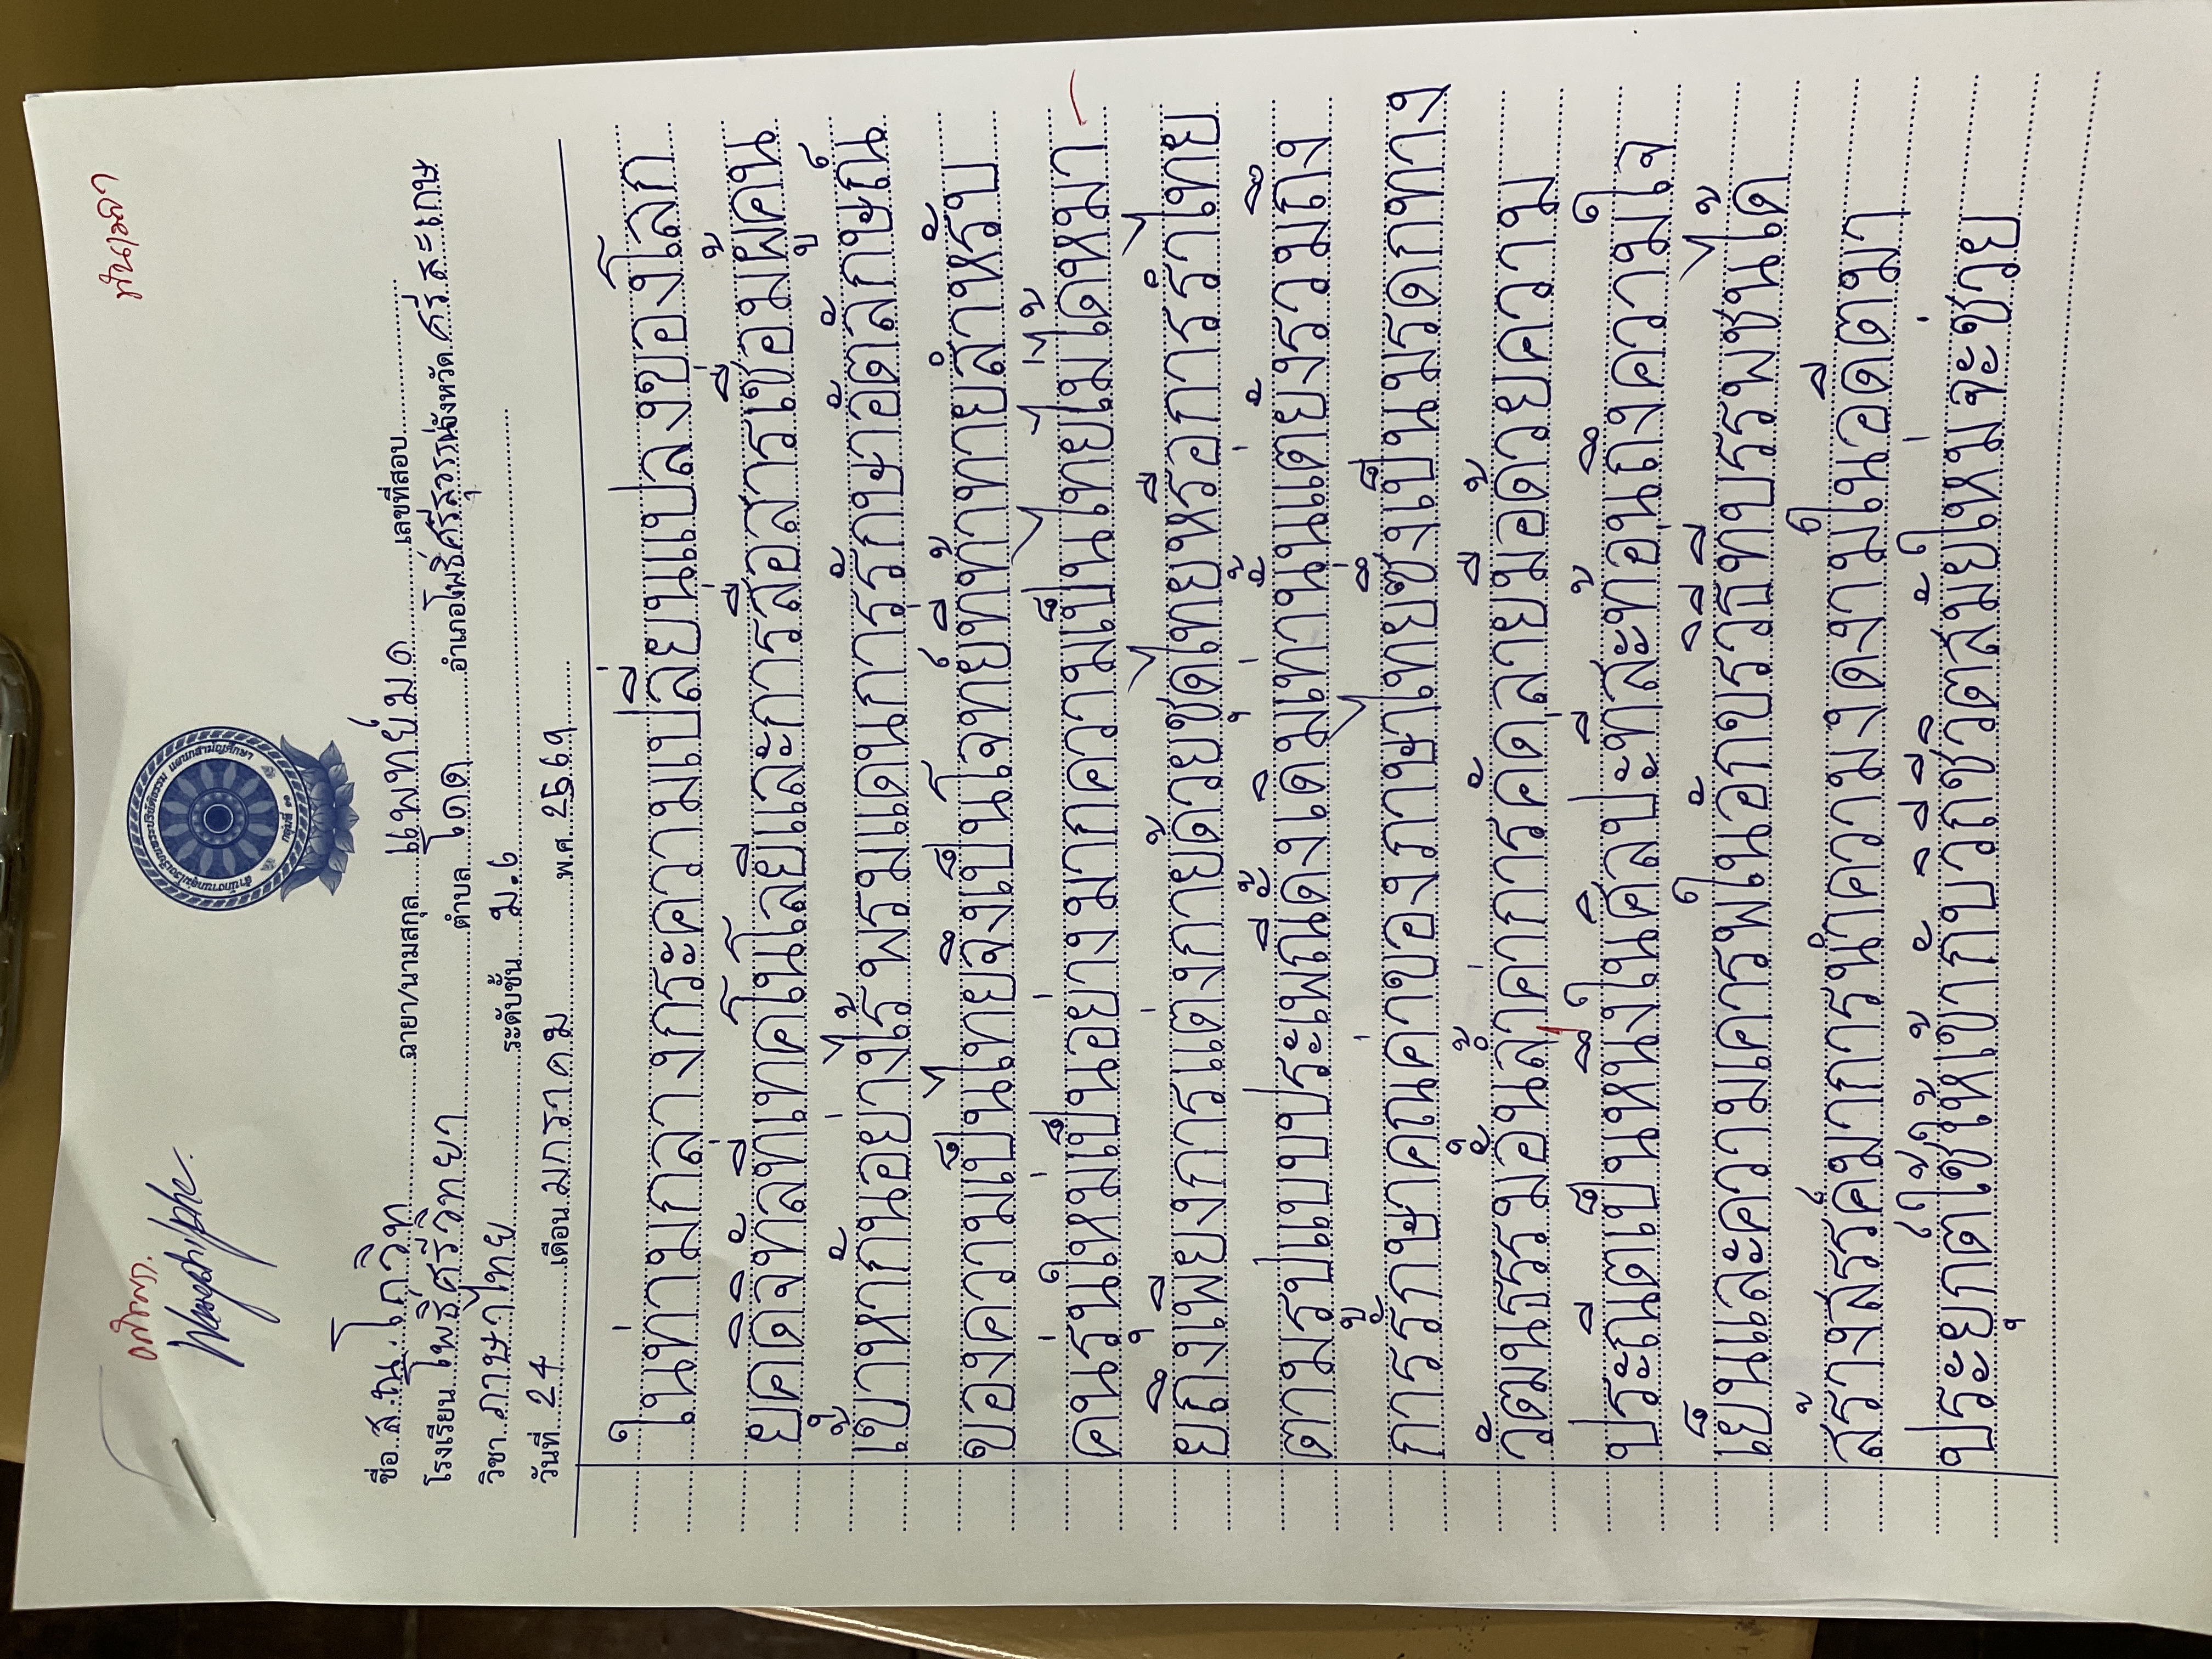 ทันเวลา
สำนักงานกลุ่มโรงเรียนพระปริยัติธรรม แผนกสามัญศึกษา
กลุ่มที่ ๑๑
ชื่อ ส.ณ. โกวิท ฉายา/นามสกุล แพทย์มด เลขที่สอบ
โรงเรียน โพธิ์ศรีวิทยา ตำบล โดด อำเภอ โพธิ์ศรีสุวรรณ จังหวัด ศรีสะเกษ
วิชา ภาษาไทย ระดับชั้น ม.6
วันที่ 24 เดือน มกราคม พ.ศ. 2569
ในท่ามกลางกระความเปลี่ยนแปลงของโลก
ยุคดิจิทัลที่เทคโนโลยีและการสื่อสารเชื่อมผู้คน
เข้าหากันอย่างไร้พรมแดนการรักษาอัตลักษณ์
ของความเป็นไทยจึงเป็นโจทย์ที่ท้าทายสำหรับ
คนรุ่นใหม่เป็นอย่างมากความเป็นไทยไม่ได้หมา
ยถึงเพียงการแต่งกายด้วยชุดไทยหรือการรำไทย
ตามรูปแบบประเพณีดั้งเดิมเท่านั้นแต่ยังรวมถึง
การรักษาคุณค่าของภาษาไทยซึ่งเป็นมรดกทาง
วัฒนธรรมอันล้ำค่าการคัดลายมือด้วยความ
ประณีตเป็นหนึ่งในศิลปะที่สะท้อนถึงความใจ
เย็นและความเคารพในอักขรวิธีที่บรรพชนได้
สร้างสรรค์มาการนำความงดงามในอดีตมา
ประยุกต์ใช้ให้เข้ากับวิถีชีวิตสมัยใหม่จะช่วย